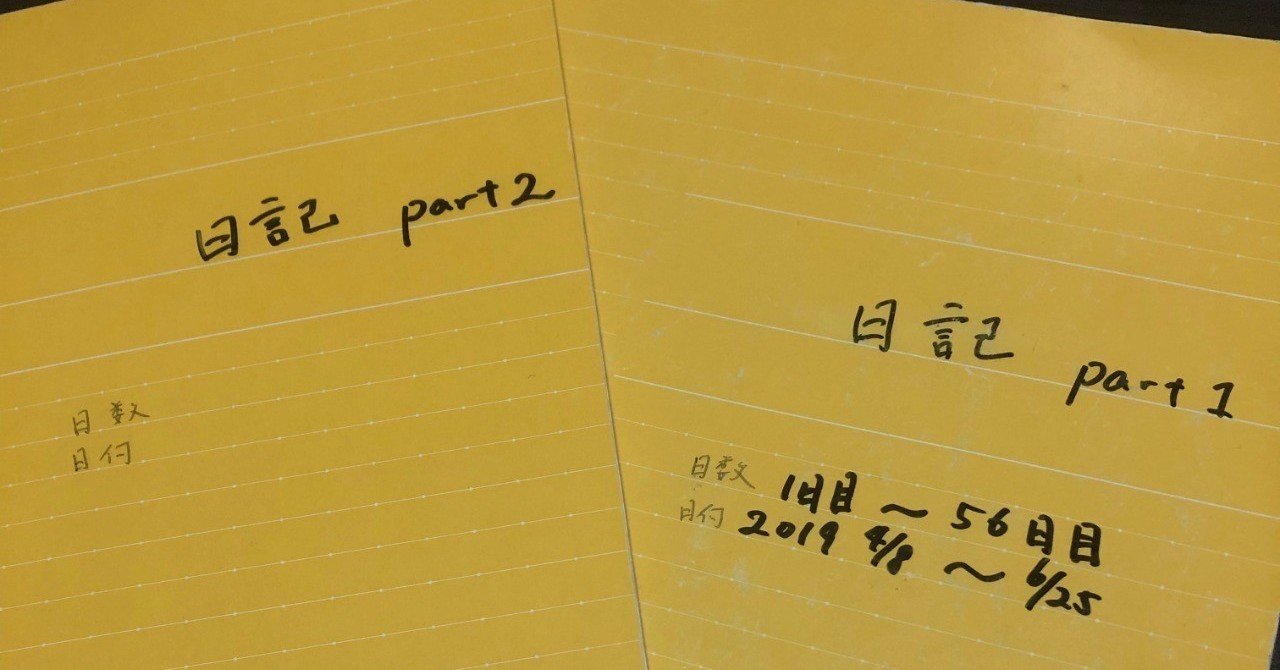 日記 part2
日数
日付
日記 part 1
日数 1日目 〜 56日目
日付 2019 4/8 〜 6/25